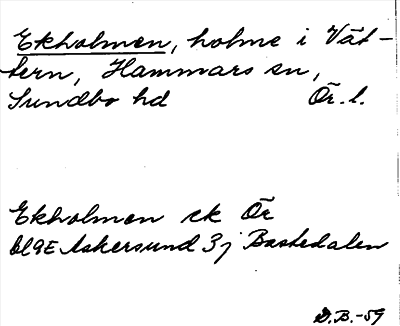 Ekholmen, holme i Vät-
tern, Hammars sn,
Sundbo hd Ör. l.
Ekholmen ek Ör
bl 9E Askersund 3j Bastedalen
D.B.-59